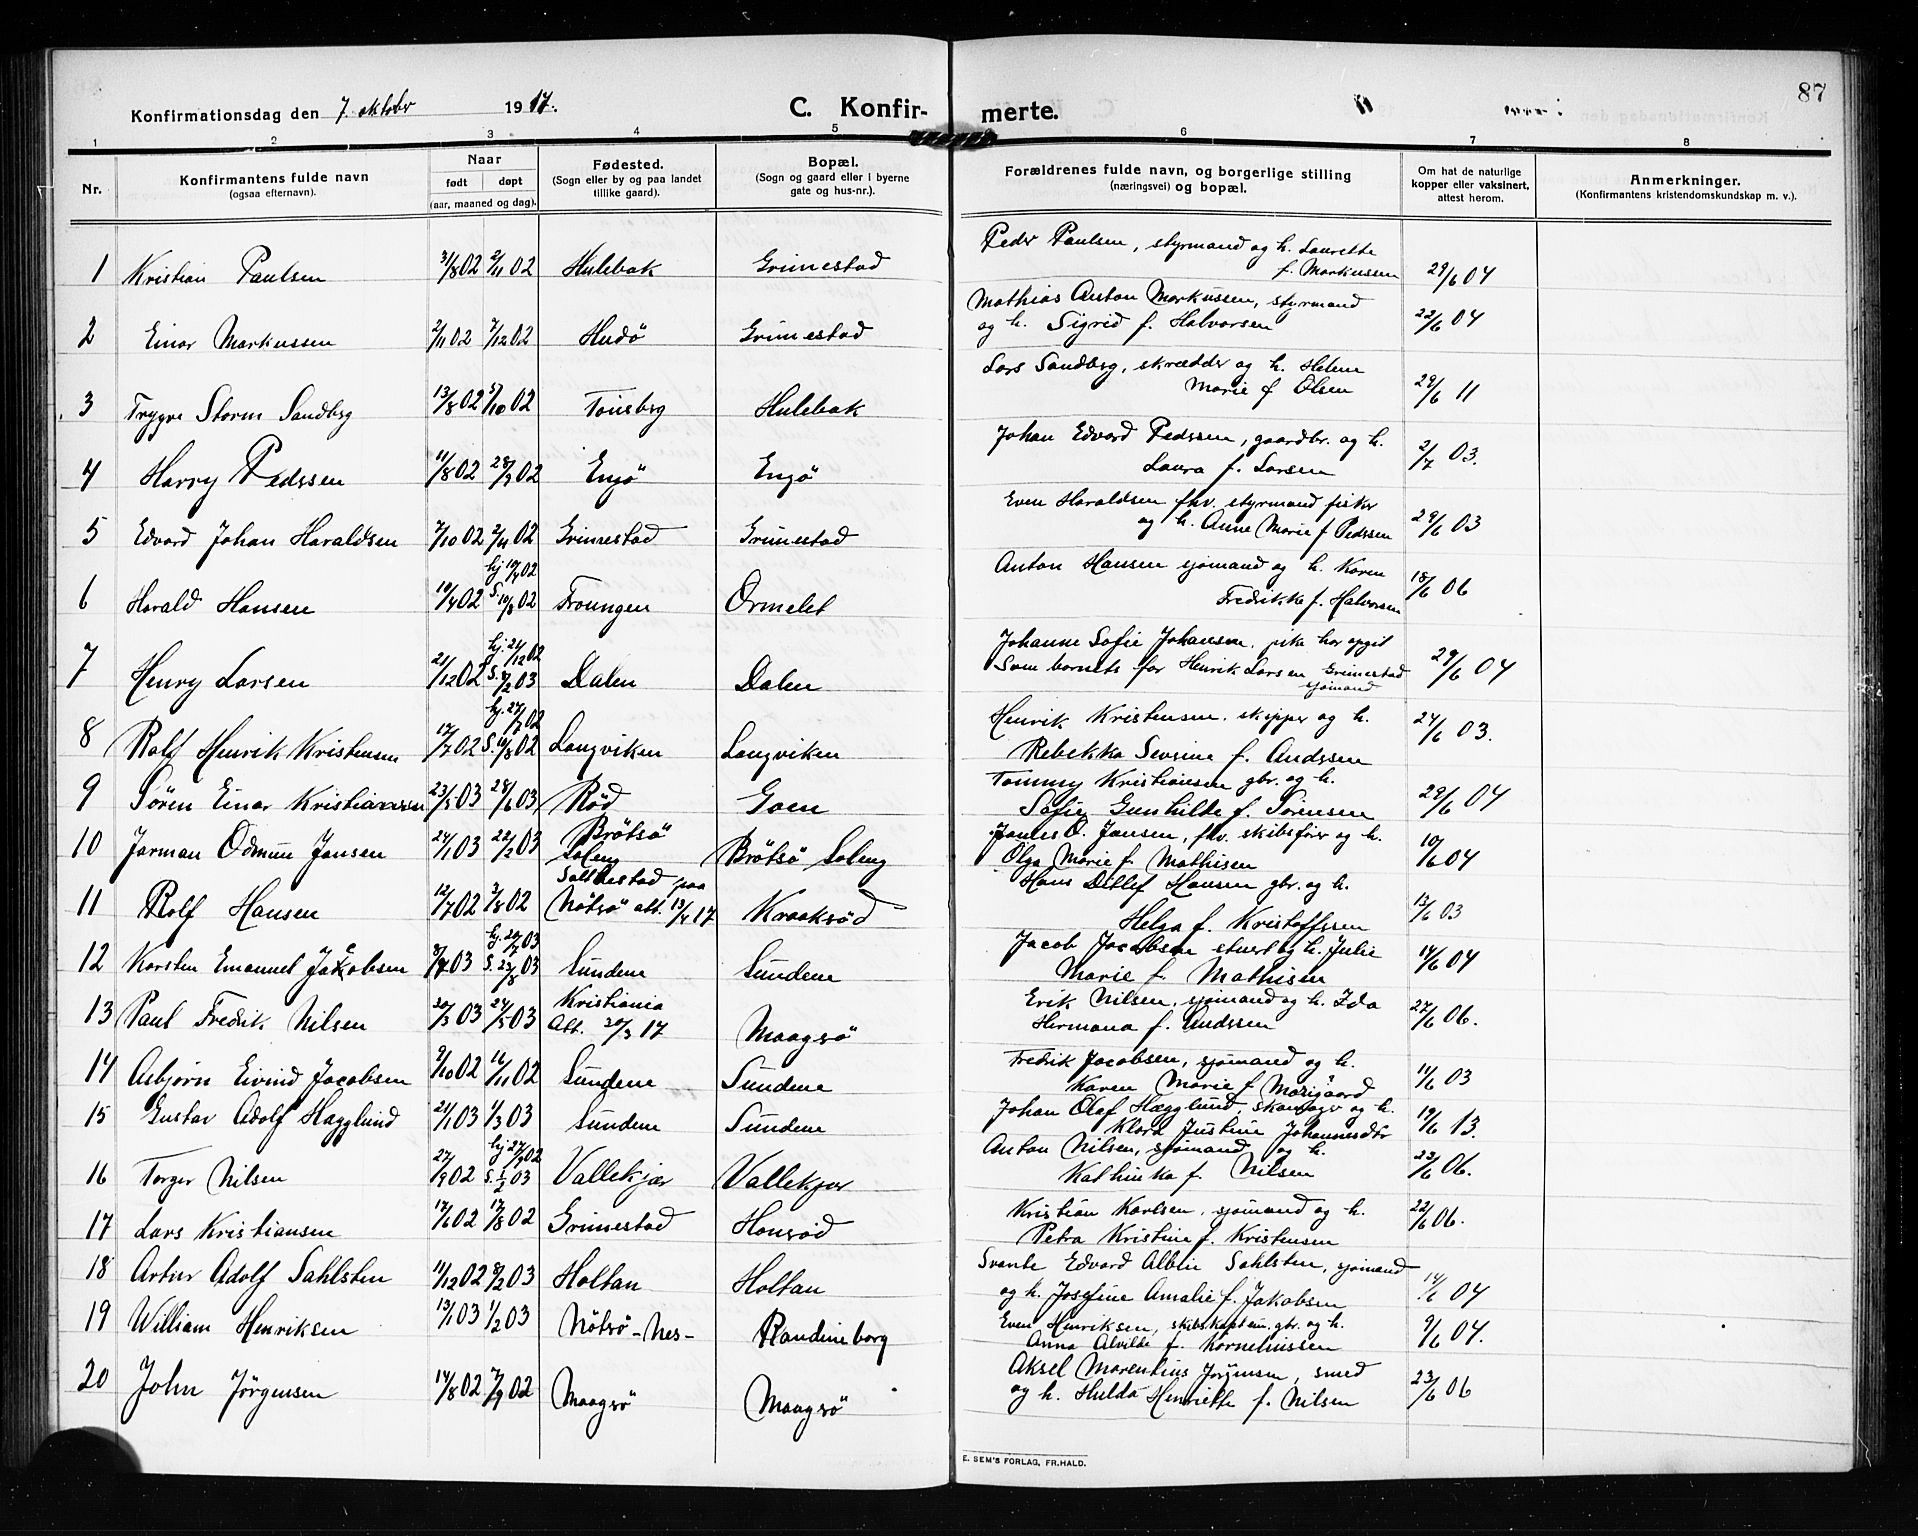 87
Konfirmationsdag den 7. oktober 1917.
C. Konfirmerte.
1 2 3 4 5 6 7 8
Nr.
Konfirmantens fulde navn
(ogsaa efternavn).
Naar
født døpt
(aar, maaned og dag).
Fødested.
(Sogn eller by og paa landet
tillike gaard).
Bopæl.
(Sogn og gaard eller i byerne
gate og hus-nr.).
Forældrenes fulde navn, og borgerlige stilling
(næringsvei) og bopæl.
Om hat de naturlige
kopper eller vaksinert,
attest herom.
Anmerkninger.
(Konfirmantens kristendomskundskap m. v.).
1 Kristian Paulsen 3/8 02 2/11 02 Hulebak Grimestad Peder Paulsen, styrmand og h. Laurette
f. Markussen 29/6 04
2 Einar Markussen 2/11 02 7/12 02 Hudö Grimestad Mathias Anton Markussen, styrmand
og h. Sigrid f. Halvorsen 22/6 04
3 Trygve Storm Sandberg 13/8 02 5/10 02 Tönsberg Hulebak Lars Sandberg, skrædder og h. Helene
Marie f Olsen 29/6 11
4 Harry Pedersen 11/8 02 28/9 02 Engö Engö Johan Edvard Pedersen, gaardbr. og h.
Laura f. Larsen 2/7 03.
5 Edvard Johan Haraldsen 7/10 02 2/11 02 Grimestad Grimestad Even Haraldsen fhv. styrmand fisker
og h. Anne Marie f Pedersen 29/6 03
6 Harald Hansen 19/4 02 hj 19/4 02
S. 10/8 02 Froungen Ormelet Anton Hansen sjömand og h. Karen
Fredrikke f. Halvorsen 18/6 06
7 Henry Larsen 21/12 02 hj. 21/12 02
S. 8/2 03 Dalen Dalen Johanne Sofie Johansen. pike har opgit
Som barnets far Henrik Larsen Grimestad
sjömand 29/6 04
8 Rolf Henrik Kristensen 17/7 02 hj. 27/7 02
S. 10/8 02 Langviken Langviken Henrik Kristensen. skipper og h.
Rebekka Severine f. Andersen 24/6 03.
9 Sören Einar Kristiansen 23/5 03 28/6 03 Röd Goen Tommy Kristiansen gbr. og h.
Sofie Gunhilde f. Sörensen 29/6 04
10 Jarman Odmun Jansen 24/1 03 22/2 03 Brötsö
Soleng Brötsö Soleng Paules O. Jansen, fhv. skibsförer og h.
Olga Marie f. Mathisen 10/6 04
11 Rolf Hansen 12/7 02 3/8 02 Saltkestad paa
Nötsö att. 13/4 17 Kraakröd Hans Ditlef Hansen gbr. og h.
Helga f. Kristoffersen 13/6 03
12 Karsten Emanuel Jacobsen 8/7 03 hj. 20/7 03
S. 23/8 03 Sundene Sundene Jacob Jacobsen stuert og h. Julie
Marie f. Mathisen 14/6 04
13 Paul Fredrik Nilsen 20/3 03 24/5 03 Kristiania
Att. 20/3 17 Maagerö Erik Nilsen, sjömand og h. Ida
Hermana f. Andersen 27/6 06.
14 Asbjörn Eivind Jacobsen 9/10 02 16/11 02 Sundene Sundene Fredrik Jacobsen, sjömand og h.
Karen Marie f Morigaard 11/6 03
15 Gustav Adolf Hagglund 21/1 03 1/3 03 Sundene Sundene Johan Olaf Hægglund, skomager og h.
Klara Justine Johannesdtr 19/6 13.
16 Torger Nilsen 27/9 02 hj 27/9 02
S. 1/2 03 Vallekjær Vallekjær Anton Nilsen, sjömand og h.
Kathinka f. Nilsen 23/6 06.
17 Lars Kristiansen 17/6 02 17/8 02 Grimestad Honeröd Kristian Karlsen, sjömand og h.
Petra Kristine f. Kristensen 22/6 06.
18 Artur Adolf Sahlsten 11/12 02 8/2 03 Holtan Holtan Svante Edvard Albin Sahlsten, sjömand
og h. Josefine Amalie f. Jakobsen 14/6 04
19 William Henriksen 13/1 03 1/2 03 Nötsö-Nes- Randineborg Even Henriksen, skibskaptein. gbr. og h.
Anna Alvilde f. Korneliussen 9/6 04.
20 John Jörgensen 14/8 02 7/9 02 Maagerö Maagerö Aksel Marentius Jörgensen, smed
og h. Hulda Henriette f. Nilsen 23/6 06
E. SEM'S FORLAG, FR.HALD.